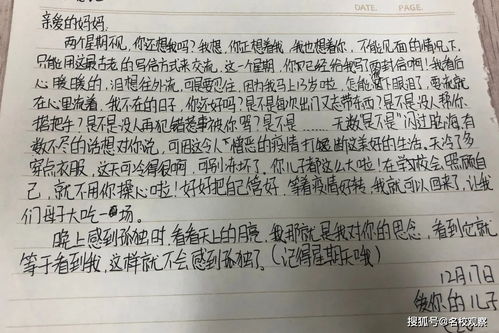 DATE. PAGE.
亲爱的妈妈:
两个星期不见,你还想我吗?我想,你正想着我,我也想着你,不能见面的情况下,
只能用这最古老的写信方式来交流,这一个星期,你已经给我写了两封信啊!我看后
心暖暖的,泪想往外流,可要忍住,因为我马上13岁啦,怎能落下眼泪了,要流就
在心里流着,我不在的日子,你还好吗?是不是每次出门又去带东西?是不是没人帮你
指把手?是不是没人再犯错惹事被你骂?是不是……无数“是不是”闪过脑海,有
数不尽的话想对你说,可因这令人憎恶的疫情打破断这美好的生活,天冷了多
穿点衣服,这天可冷得很啊,可别冻坏了。你儿子都这么大啦!在学校会照顾自
己,就不用你操心啦!好好把自己管好,等着疫情好转,我就可以回来了,让我
们母子大吃一场。
晚上感到孤独时,看看天上的月亮,我那就是我对你的思念,看到它就
等于看到我,这样就不会感到孤独了。(记得星期天哦)
12月17日
爱你的儿子
搜狐号@名校观察